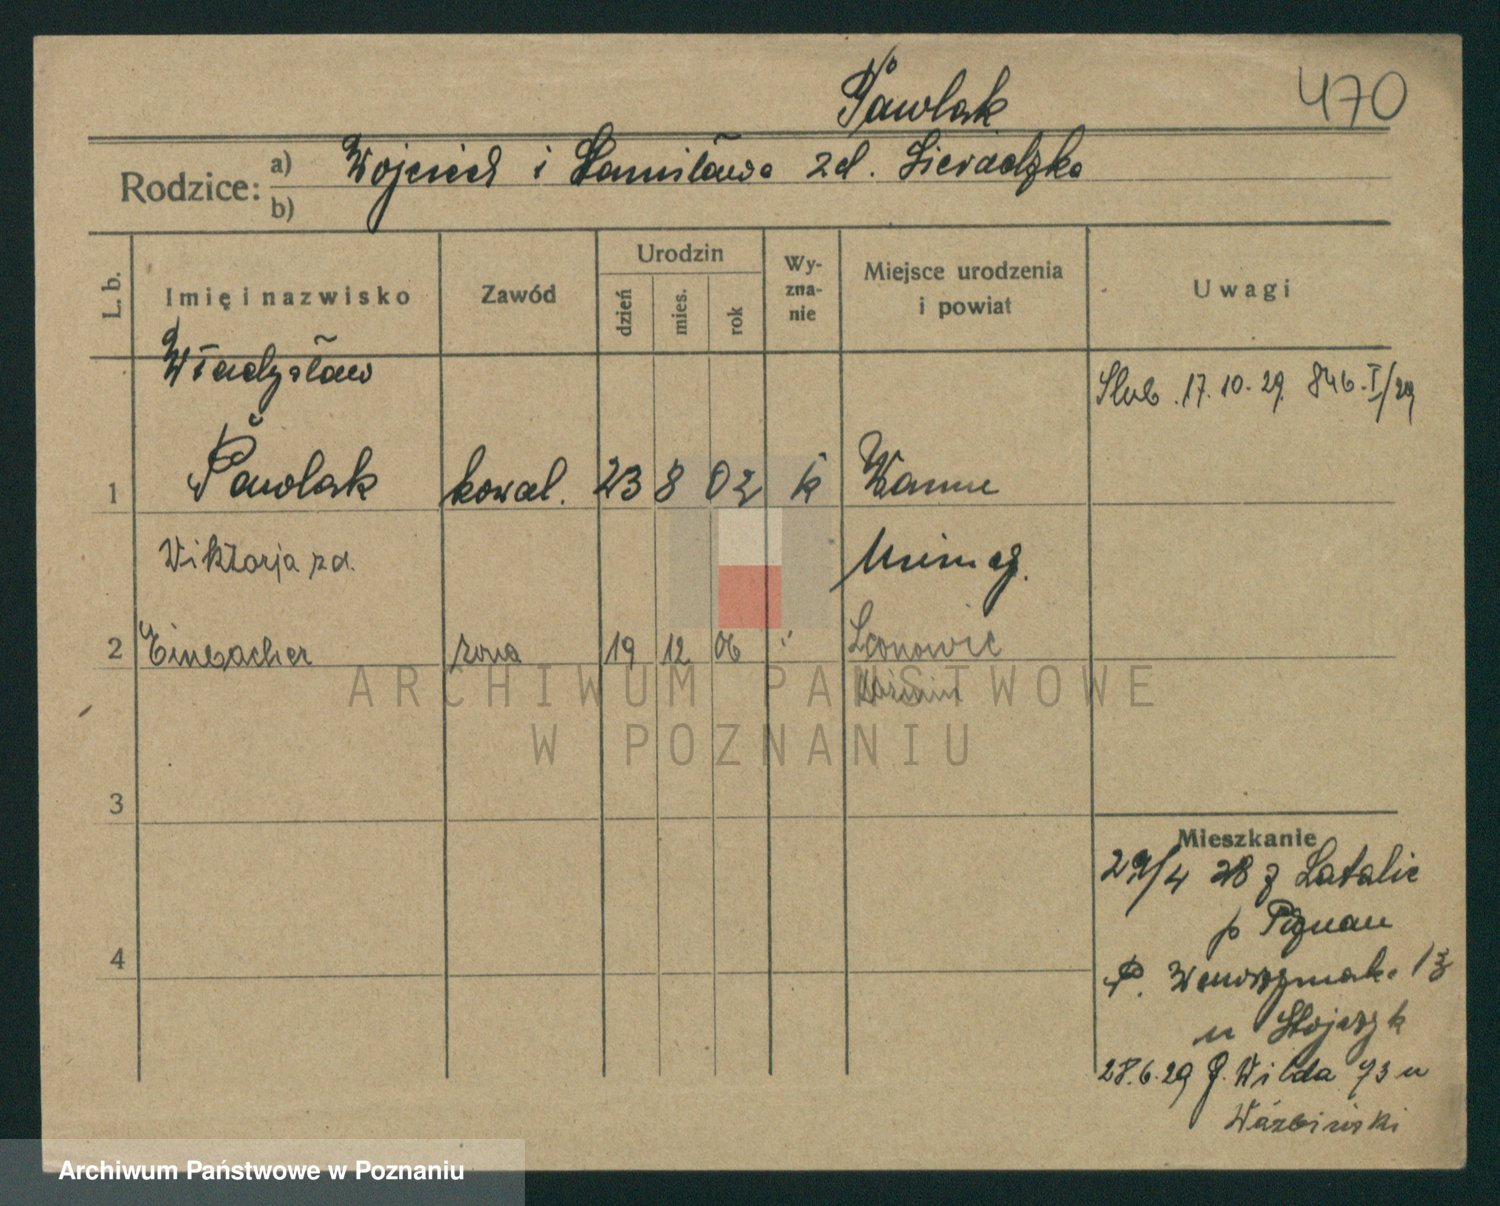 Pawlak
470
Rodzice: a) Wojciech i Stanisława zd. Sieradzka
b)
L. b.
Imię i nazwisko
Zawód
Urodzin
dzień
mies.
rok
Wy-
zna-
nie
Miejsce urodzenia
i powiat
Uwagi
Władysław
Ślub. 17. 10. 29. 846. I/29
1 Pawlak kowal. 23 8 02 k Wanne
Wiktorja zd.
Niemcy.
2 Einbacher żona 19 12 06
ARCHIWUM PAŃSTWOWE
W POZNANIU
3
4
Mieszkanie
29/4 28 z Latalic
p Poznań
P. 13
u Stojczyk
28.6.29 G. Wilda 73 u
Wazbiński
Archiwum Państwowe w Poznaniu